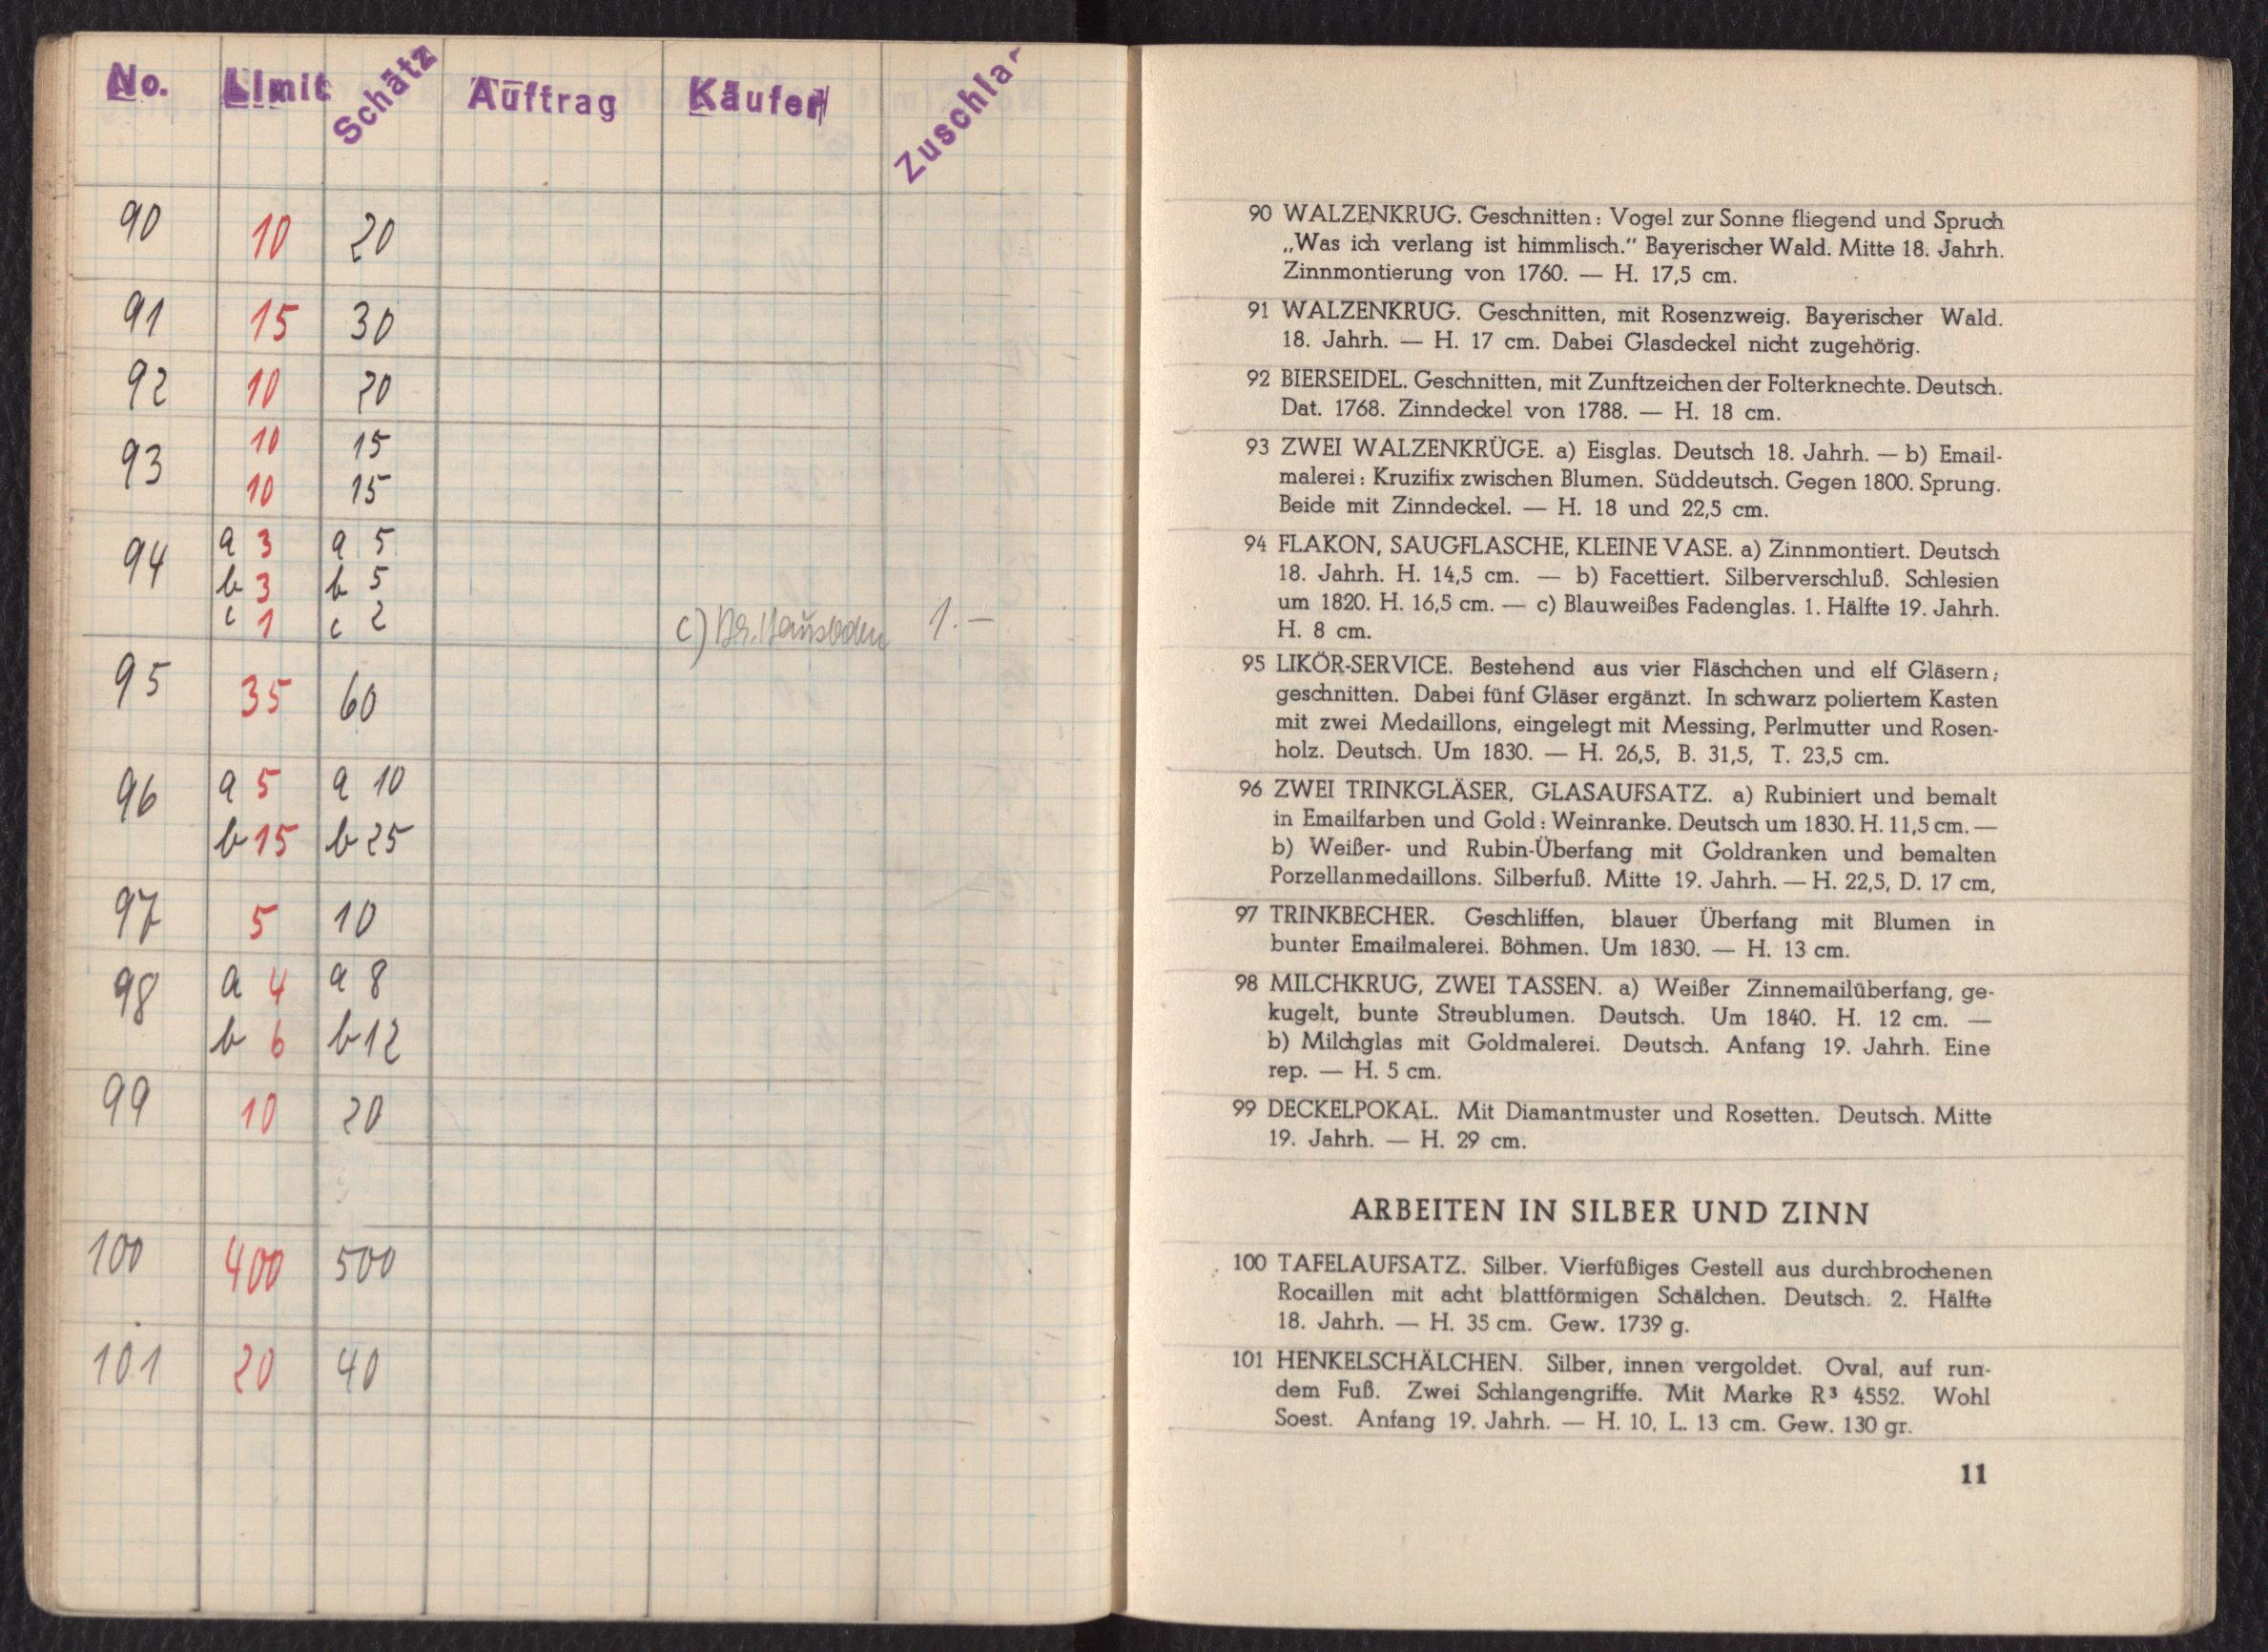 No. Limit Schätz Auftrag Käufer Zuschla
90 10 20
91 15 30
92 10 20
93 10 15
10 15
94 a 3 a 5
b 3 b 5
c 1 c 2 c) 1.—
95 35 60
96 a 5 a 10
b 15 b 25
97 5 10
98 a 4 a 8
b 6 b 12
99 10 20
100 400 500
101 20 40
90 WALZENKRUG. Geschnitten: Vogel zur Sonne fliegend und Spruch
„Was ich verlang ist himmlisch.“ Bayerischer Wald. Mitte 18. Jahrh.
Zinnmontierung von 1760. — H. 17,5 cm.
91 WALZENKRUG. Geschnitten, mit Rosenzweig. Bayerischer Wald.
18. Jahrh. — H. 17 cm. Dabei Glasdeckel nicht zugehörig.
92 BIERSEIDEL. Geschnitten, mit Zunftzeichen der Folterknechte. Deutsch.
Dat. 1768. Zinndeckel von 1788. — H. 18 cm.
93 ZWEI WALZENKRÜGE. a) Eisglas. Deutsch 18. Jahrh. — b) Email-
malerei: Kruzifix zwischen Blumen. Süddeutsch. Gegen 1800. Sprung.
Beide mit Zinndeckel. — H. 18 und 22,5 cm.
94 FLAKON, SAUGFLASCHE, KLEINE VASE. a) Zinnmontiert. Deutsch
18. Jahrh. H. 14,5 cm. — b) Facettiert. Silberverschluß. Schlesien
um 1820. H. 16,5 cm. — c) Blauweißes Fadenglas. 1. Hälfte 19. Jahrh.
H. 8 cm.
95 LIKÖR-SERVICE. Bestehend aus vier Fläschchen und elf Gläsern;
geschnitten. Dabei fünf Gläser ergänzt. In schwarz poliertem Kasten
mit zwei Medaillons, eingelegt mit Messing, Perlmutter und Rosen-
holz. Deutsch. Um 1830. — H. 26,5, B. 31,5, T. 23,5 cm.
96 ZWEI TRINKGLÄSER, GLASAUFSATZ. a) Rubiniert und bemalt
in Emailfarben und Gold: Weinranke. Deutsch um 1830. H. 11,5 cm. —
b) Weißer- und Rubin-Überfang mit Goldranken und bemalten
Porzellanmedaillons. Silberfuß. Mitte 19. Jahrh. — H. 22,5, D. 17 cm,
97 TRINKBECHER. Geschliffen, blauer Überfang mit Blumen in
bunter Emailmalerei. Böhmen. Um 1830. — H. 13 cm.
98 MILCHKRUG, ZWEI TASSEN. a) Weißer Zinnemailüberfang, ge-
kugelt, bunte Streublumen. Deutsch. Um 1840. H. 12 cm. —
b) Milchglas mit Goldmalerei. Deutsch. Anfang 19. Jahrh. Eine
rep. — H. 5 cm.
99 DECKELPOKAL. Mit Diamantmuster und Rosetten. Deutsch. Mitte
19. Jahrh. — H. 29 cm.
ARBEITEN IN SILBER UND ZINN
100 TAFELAUFSATZ. Silber. Vierfüßiges Gestell aus durchbrochenen
Rocaillen mit acht blattförmigen Schälchen. Deutsch. 2. Hälfte
18. Jahrh. — H. 35 cm. Gew. 1739 g.
101 HENKELSCHÄLCHEN. Silber, innen vergoldet. Oval, auf run-
dem Fuß. Zwei Schlangengriffe. Mit Marke R³ 4552. Wohl
Soest. Anfang 19. Jahrh. — H. 10, L. 13 cm. Gew. 130 gr.
11